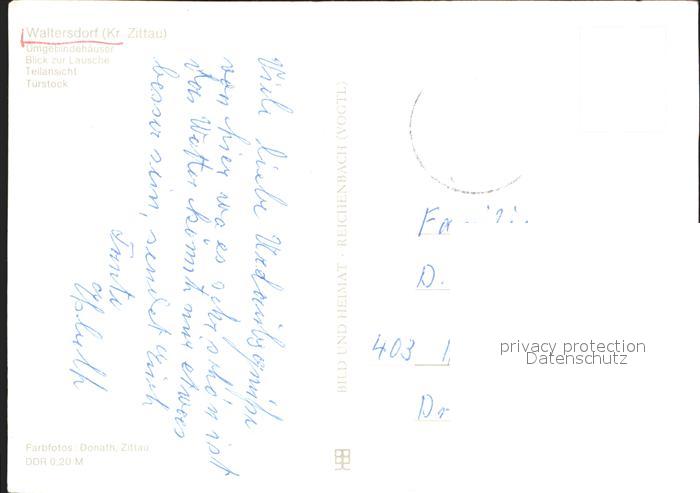 Waltersdorf (Kr. Zittau)
Umgebindehäuser
Blick zur Lausche
Teilansicht
Türstock
Viele liebe Urlaubsgrüße
von hier wo es sehr schön ist
das Wetter könnt nur etwas
besser sein, sendet Euch
Tante
BILD UND HEIMAT · REICHENBACH (VOGTL)
Fa
D.
403 1
Dr
privacy protection
Datenschutz
Farbfotos: Donath, Zittau
DDR 0,20 M